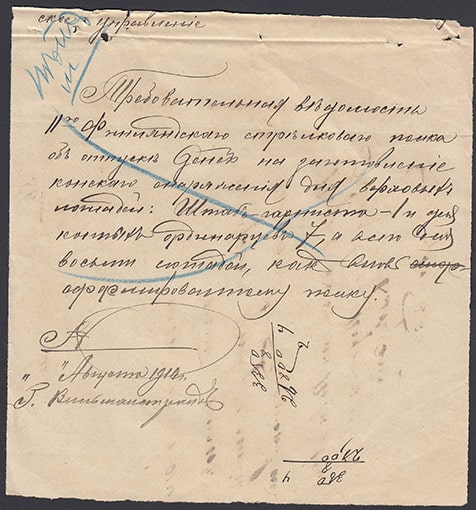 ское управленіе
Требовательная вѣдомость
11го Финляндскаго стрѣлковаго полка
объ отпускѣ денегъ на заготовленіе
конскаго снаряженія для верховыхъ
лошадей: Штабъ-горниста - 1 и для
конныхъ ординарцевъ 7, а всего для
восьми лошадей, какъ вновь
сформированному полку.
" " Августа 1910г.
Г. Вильманстрандъ